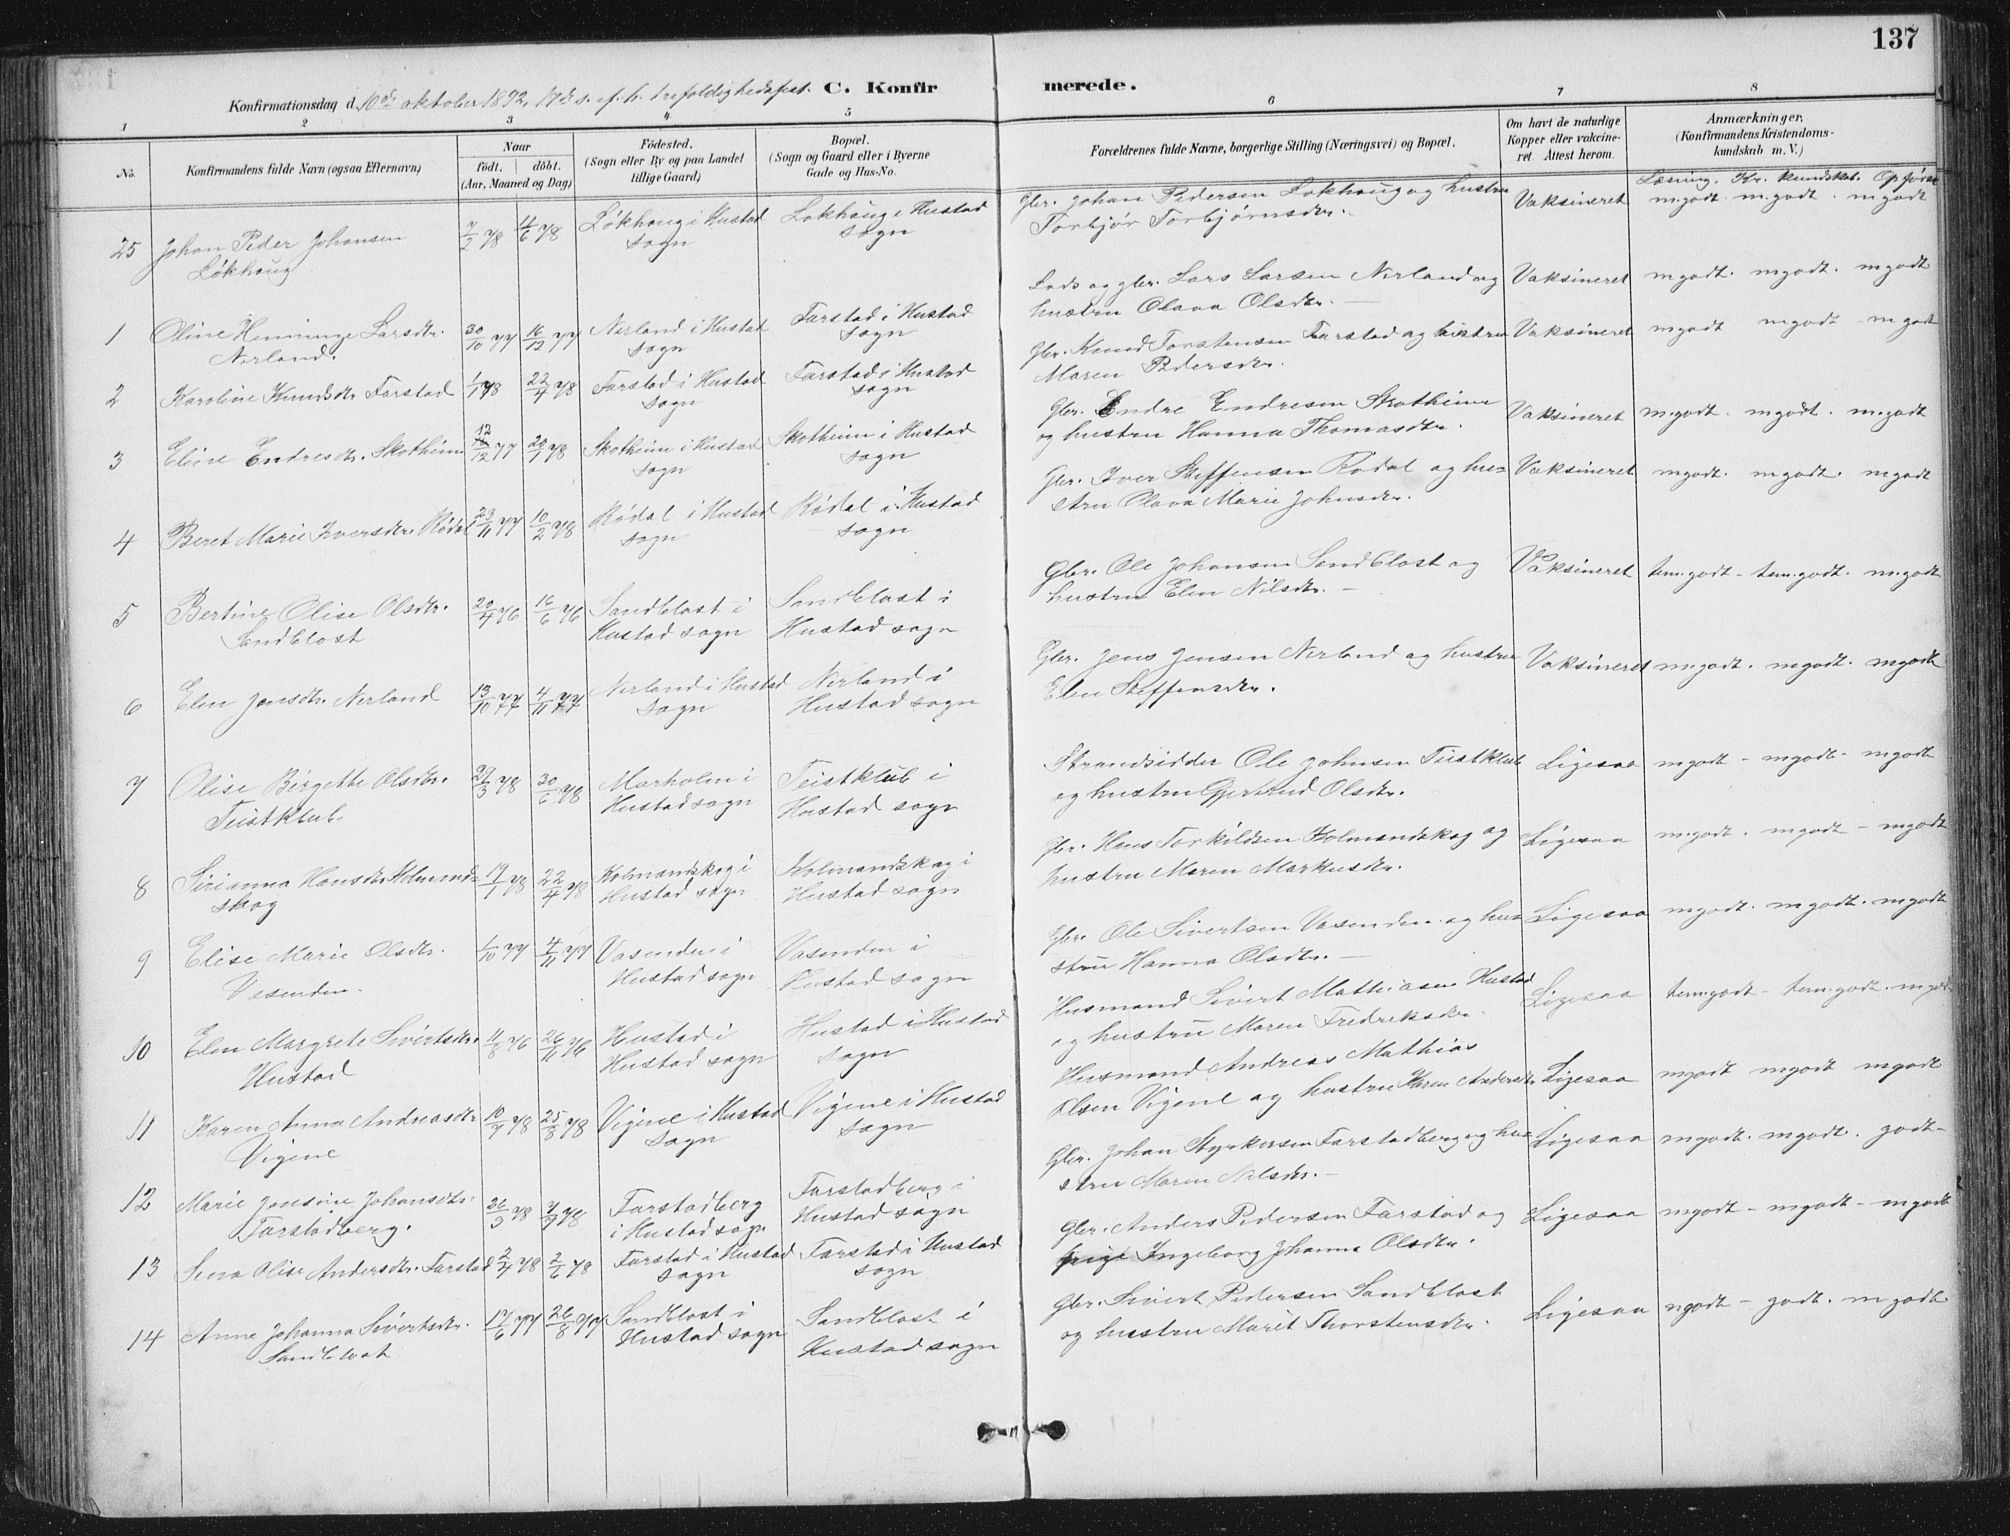 137
Konfirmationsdag d. 10de oktober 1892, 17de s. ef. h. trefoldighedsfest. C. Konfirmerede.
1 2 3 4 5 6 7 8
No. Konfirmandens fulde Navn (ogsaa Efternavn) Naar født. døbt. (Aar, Maaned og Dag) Födested. (Sogn eller By og paa Landet tillige Gaard) Bopæl. (Sogn og Gaard eller i Byerne Gade og Hus-No. Forældrenes fulde Navne, borgerlige Stilling (Næringsvei) og Bopæl. Om havt de naturlige Kopper eller vakcineret. Attest herom. Anmærkninger. (Konfirmandens Kristendomskundskab m. V.)
Læsning. Kr. kundskab. Opførsel
25 Johan Peder Johansen Løkhaug 7/2 78 14/6 78 Løkhaug i Hustad sogn Løkhaug i Hustad sogn Gbr. Johan Pedersen Løkhaug og hustru Torbjør Torbjørnsdtr. Vaksineret m.godt m.godt. m.godt
1 Oline Henninge Larsdtr. Nerland. 30/10 77 16/12 77 Nerland i Hustad sogn Farstad i Hustad sogn Lods og gbr. Lars Larsen Nerland og hustru Olava Olsdtr. — Vaksineret m.godt. m.godt. m.godt
2 Karoline Knudsdtr Farstad 1/1 78 22/4 78 Farstad i Hustad sogn Farstad i Hustad sogn Gbr. Knud Torstensen Farstad og hustru Maren Pedersdtr. Vaksineret m.godt m.godt m.godt
3 Eline Endresdtr. Skotheim 12/12 77 20/1 78 Skotheim i Hustad sogn Skotheim i Hustad sogn Gbr. Endre Endresen Skotheim og hustru Hanna Thomasdtr. Vaksineret m.godt. m.godt. m.godt
4 Beret Marie Iversdtr. Rødal 23/11 77 10/2 78 Rødal i Hustad sogn Rødal i Hustad sogn Gbr. Iver Steffensen Rødal og hustru Olava Marie Johnsdtr. Vaksineret m.godt. m.godt. m.godt
5 Bertine Olise Olsdtr. Sandblost 20/4 76 16/6 76 Sandblost i Hustad sogn Sandblost i Hustad sogn Gbr. Ole Johansen Sandblost og hustru Elen Nilsdtr. — Vaksineret tem.godt - tem.godt. m.godt
6 Elen Jensdtr. Nerland 13/10 77 4/11 77 Nerland i Hustad sogn Nerland i Hustad sogn Gbr. Jens Jensen Nerland og hustru Elen Steffensdtr. Vaksineret m.godt. m.godt. m.godt
7 Olise Birgette Olsdtr. Teistklub. 27/3 78 30/6 78 Marholm i Hustad sogn Teistklub i Hustad sogn Strandsidder Ole Johnsen Teistklub og hustru Gjertrud Olsdtr. Ligesaa m.godt - m.godt - m.godt
8 Sirianna Hansdtr. Kolmandskog 19/1 78 22/4 78 Kolmandskog i Hustad sogn Kolmandskog i Hustad sogn Gbr. Hans Torkildsen Kolmandskog og hustru Maren Markusdtr. Ligesaa m.godt. m.godt - m.godt
9 Elise Marie Olsdtr. Vasenden. 1/10 77 4/11 77 Vasenden i Hustad sogn Vasenden i Hustad sogn Gbr. Ole Sivertsen Vasenden og hustru Hanna Olsdtr. — Ligesaa m.godt. m.godt. m.godt
10 Elen Margrete Sivertsdtr. Hustad 11/8 76 26/11 76 Hustad i Hustad sogn Hustad i Hustad sogn Husmand Sivert Mathiasen Hustad og hustru Maren Fredriksdtr. Ligesaa tem.godt - tem.godt. m.godt
11 Karen Anna Andreasdtr Vigene 10/7 78 25/8 78 Vigene i Hustad sogn Vigene i Hustad sogn Husmand Andreas Mathias Olsen Vigene og hustru Karen Andersdtr Ligesaa m.godt m.godt m.godt
12 Marie Jonsine Johansdtr. Farstadberg. 26/3 78 7/7 78 Farstadberg i Hustad sogn Farstadberg i Hustad sogn Gbr. Johan Styrkersen Farstadberg og hustru Maren Nilsdtr. — Ligesaa m.godt. m.godt. godt -
13 Sina Olise Andersdtr. Farstad 2/4 78 2/6 78 Farstad i Hustad sogn Farstad i Hustad sogn Gbr. Anders Pedersen Farstad og pige Ingeborg Johanna Olsdtr. Ligesaa m.godt - m.godt - m.godt
14 Anne Johanna Sivertsdtr. Sandblost 17/6 77 26/8 77 Sandblost i Hustad sogn Sandblost i Hustad sogn Gbr. Sivert Pedersen Sandblost og hustru Marit Thorstensdtr. Ligesaa m.godt - godt. m.godt